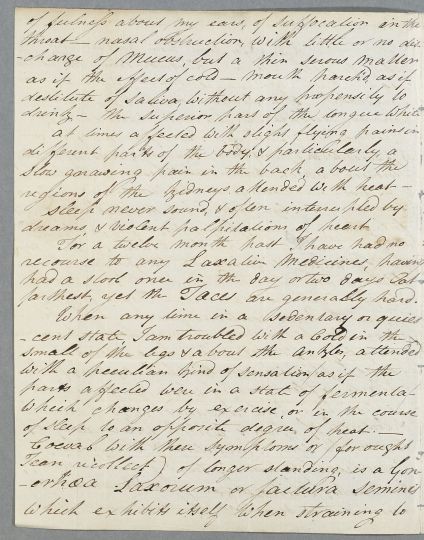 of fulness about my ears, of suffocation in the
throat — nasal obstruction, with little or no dis
-charge of Mucus, but a thin serous matter
as if the effect of cold — mouth parch'd as if
destitute of saliva, without any propensity to
drink — the superior part of the tongue white
at times affected with slight flying pains in
different parts of the body, & particularly a
slow gnawing pain in the back, about the
regions of the kidneys attended with heat —
sleep never sound, & often interrupted by
dreams, & violent palpitations of heart
For a twelve month past I have had no
recourse to any Laxative Medicines, having
had a stool once in the day or two days at
farthest, yet the Faeces are generally hard.
When any time in a sedentary or quies
-cent state, I am troubled with a Cold in the
small of the legs & about the ankles, attended
with a peculiar kind of sensation as if the
parts affected were in a state of fermenta-
which changes by exercise, or in the course
of sleep to an opposite degree of heat. —
Coeval with these symptoms or (for ought
I can recollect) of longer standing, is a Gon
-orhœa Laxorum or factura seminis
which exhibits itself when straining to